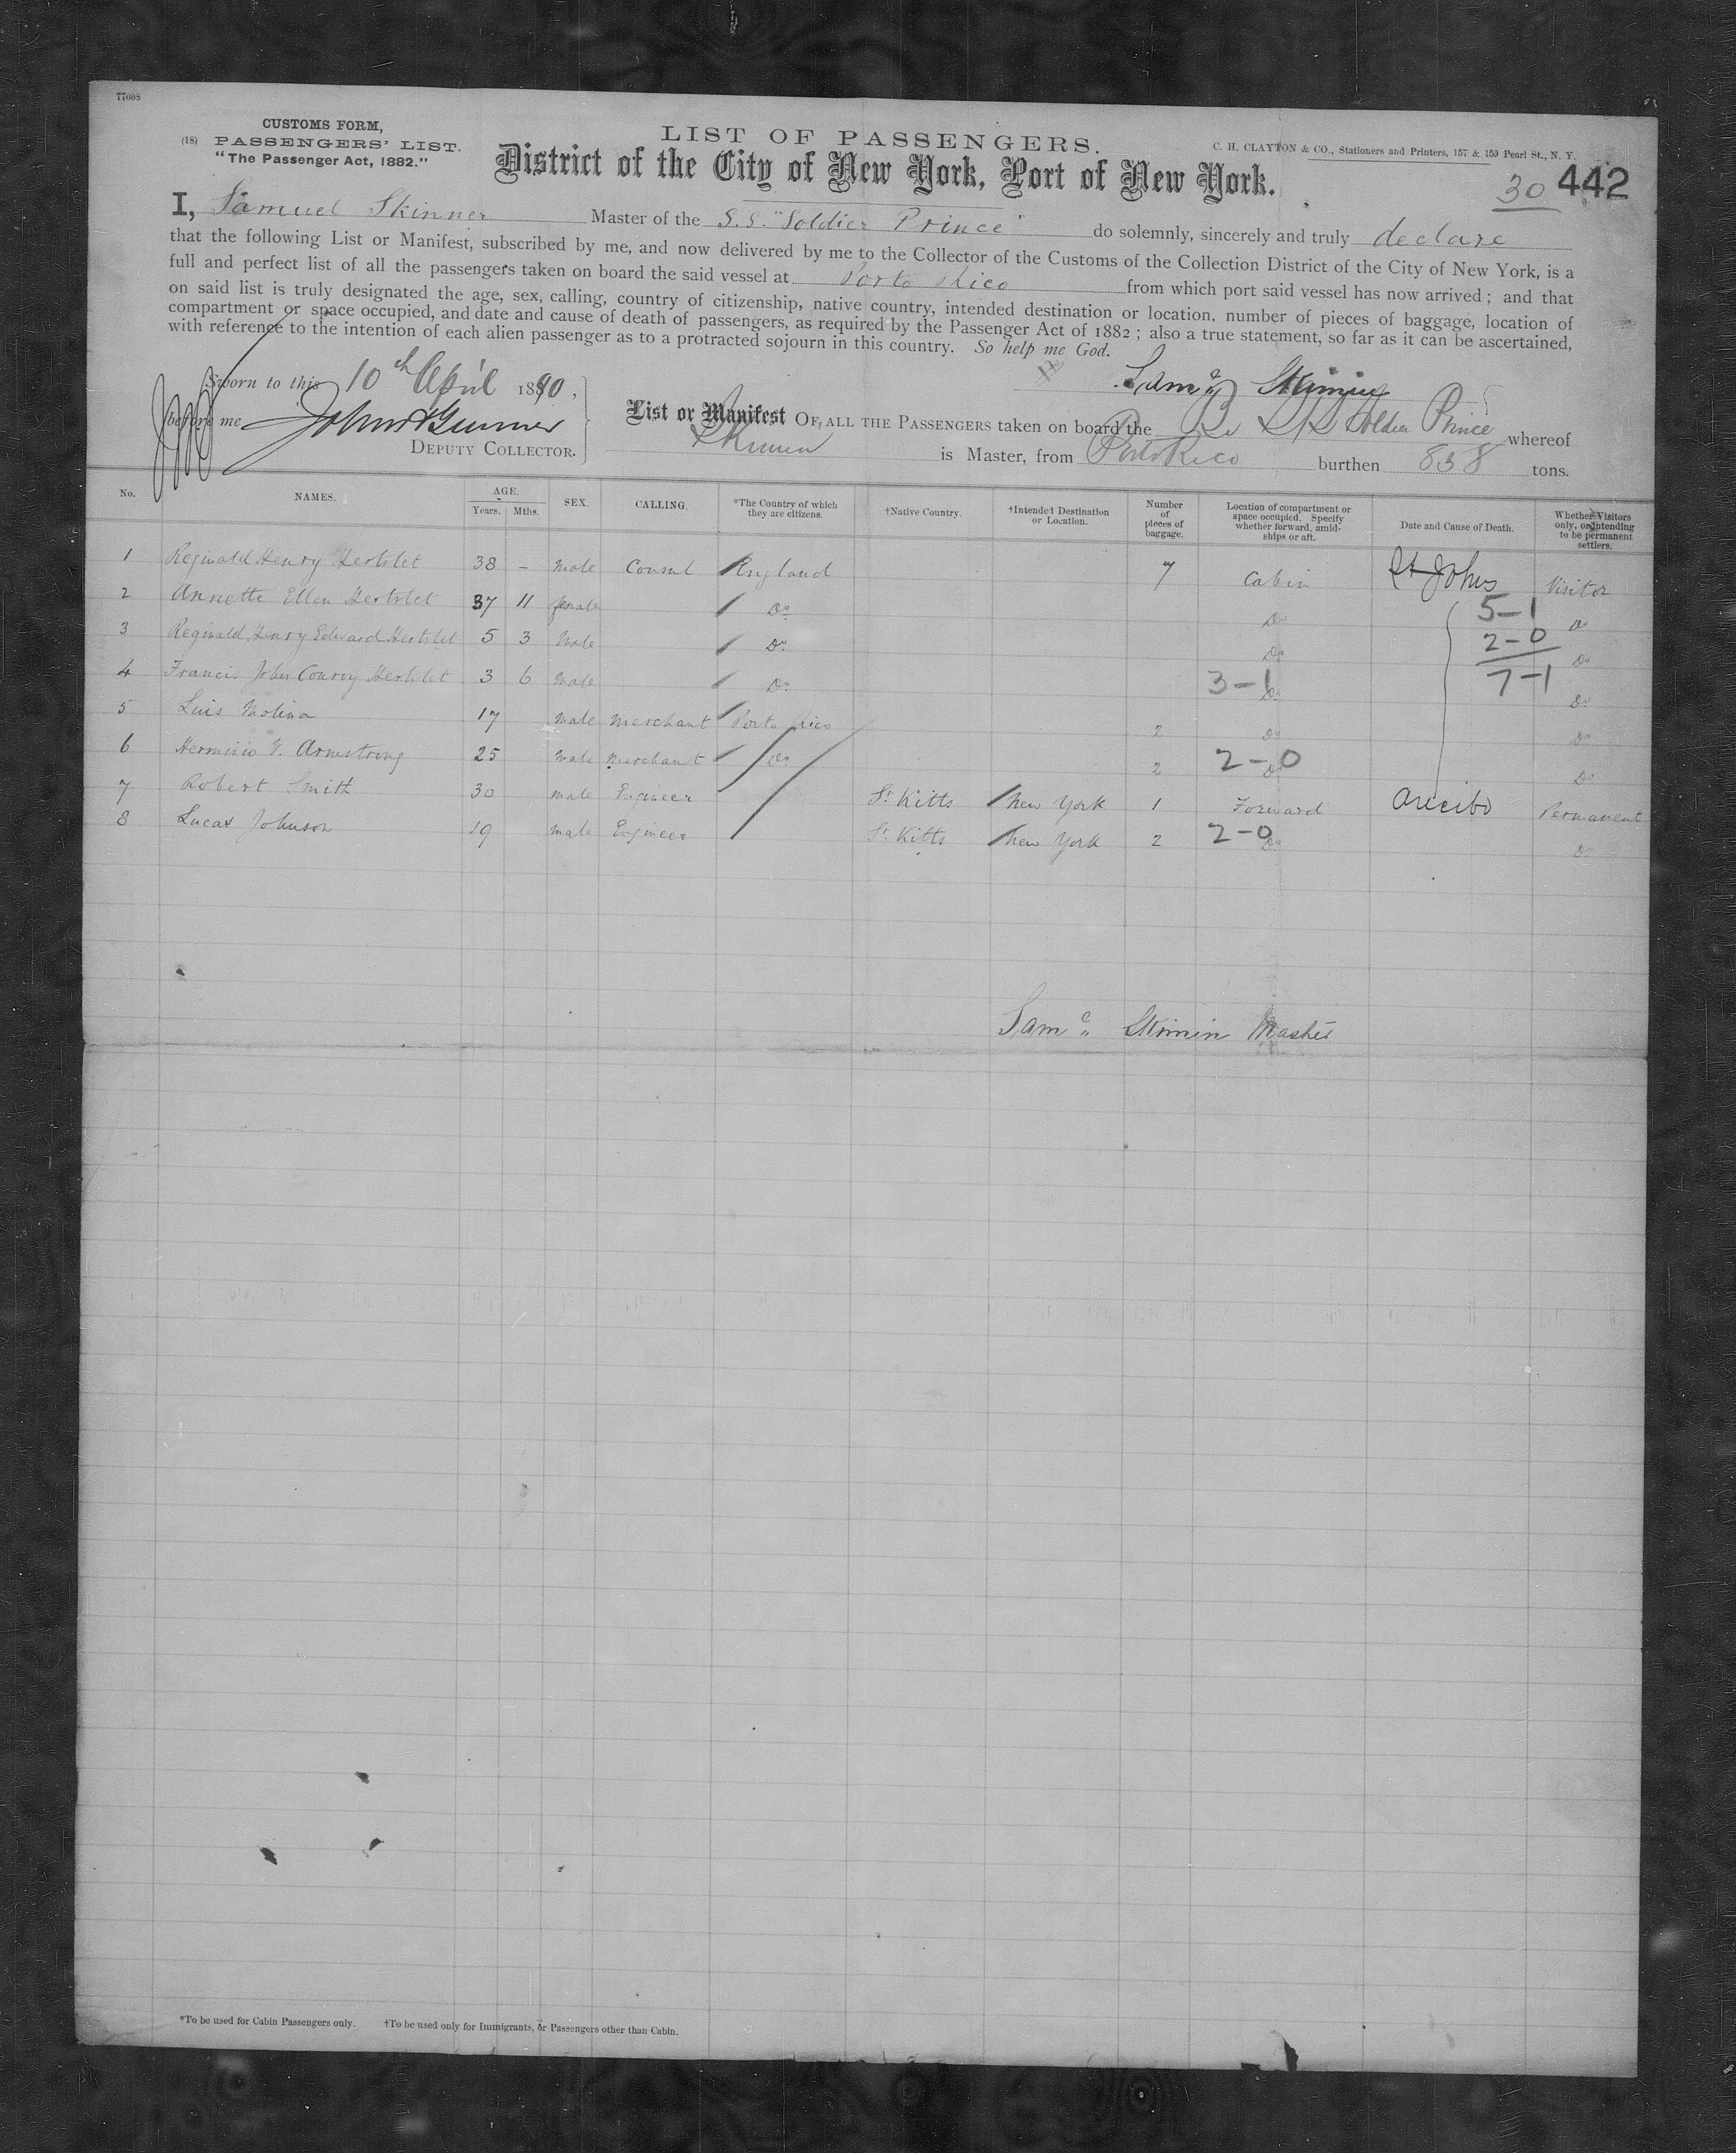 77008
CUSTOMS FORM,
(18) PASSENGERS' LIST.
"The Passenger Act, 1882."
LIST OF PASSENGERS.
C. H. CLAYTON & CO., Stationers and Printers, 157 & 159 Pearl St., N. Y.
District of the City of New York, Port of New York.
30 442
I, Samuel Skinner Master of the S.S. "Soldier Prince" do solemnly, sincerely and truly declare
that the following List or Manifest, subscribed by me, and now delivered by me to the Collector of the Customs of the Collection District of the City of New York, is a
full and perfect list of all the passengers taken on board the said vessel at Porto Rico from which port said vessel has now arrived; and that
on said list is truly designated the age, sex, calling, country of citizenship, native country, intended destination or location, number of pieces of baggage, location of
compartment or space occupied, and date and cause of death of passengers, as required by the Passenger Act of 1882; also a true statement, so far as it can be ascertained,
with reference to the intention of each alien passenger as to a protracted sojourn in this country. So help me God.
Sworn to this 10th April 1890,
Saml Skinner
before me
DEPUTY COLLECTOR.
List or Manifest OF ALL THE PASSENGERS taken on board the Br S/S Soldier Prince whereof
Skinner is Master, from Porto Rico burthen 838 tons.
No. NAMES. AGE. Years. Mths. SEX. CALLING. *The Country of which they are citizens. †Native Country. †Intended Destination or Location. Number of pieces of baggage. Location of compartment or space occupied. Specify whether forward, amidships or aft. Date and Cause of Death. Whether Visitors only, or intending to be permanent settlers.
1 Reginald Henry Hertslet 38 - male Consul England 7 Cabin St Johns Visitor
2 Annette Ellen Hertslet 37 11 female Do Do 5-1 Do
3 Reginald Henry Edward Hertslet 5 3 Male Do Do 2-0 Do
4 Francis John Conroy Hertslet 3 6 male Do 3-1 Do 7-1 Do
5 Luis Molina 17 male merchant Porto Rico 2 Do Do
6 Herminio V. Armstrong 25 male merchant Do 2 2-0 Do Do
7 Robert Smith 30 male Engineer St Kitts New York 1 Forward Arecibo Permanent
8 Lucas Johnson 19 male Engineer St Kitts New York 2 2-0 Do Do
Saml Skinner Master
*To be used for Cabin Passengers only. †To be used only for Immigrants, or Passengers other than Cabin.